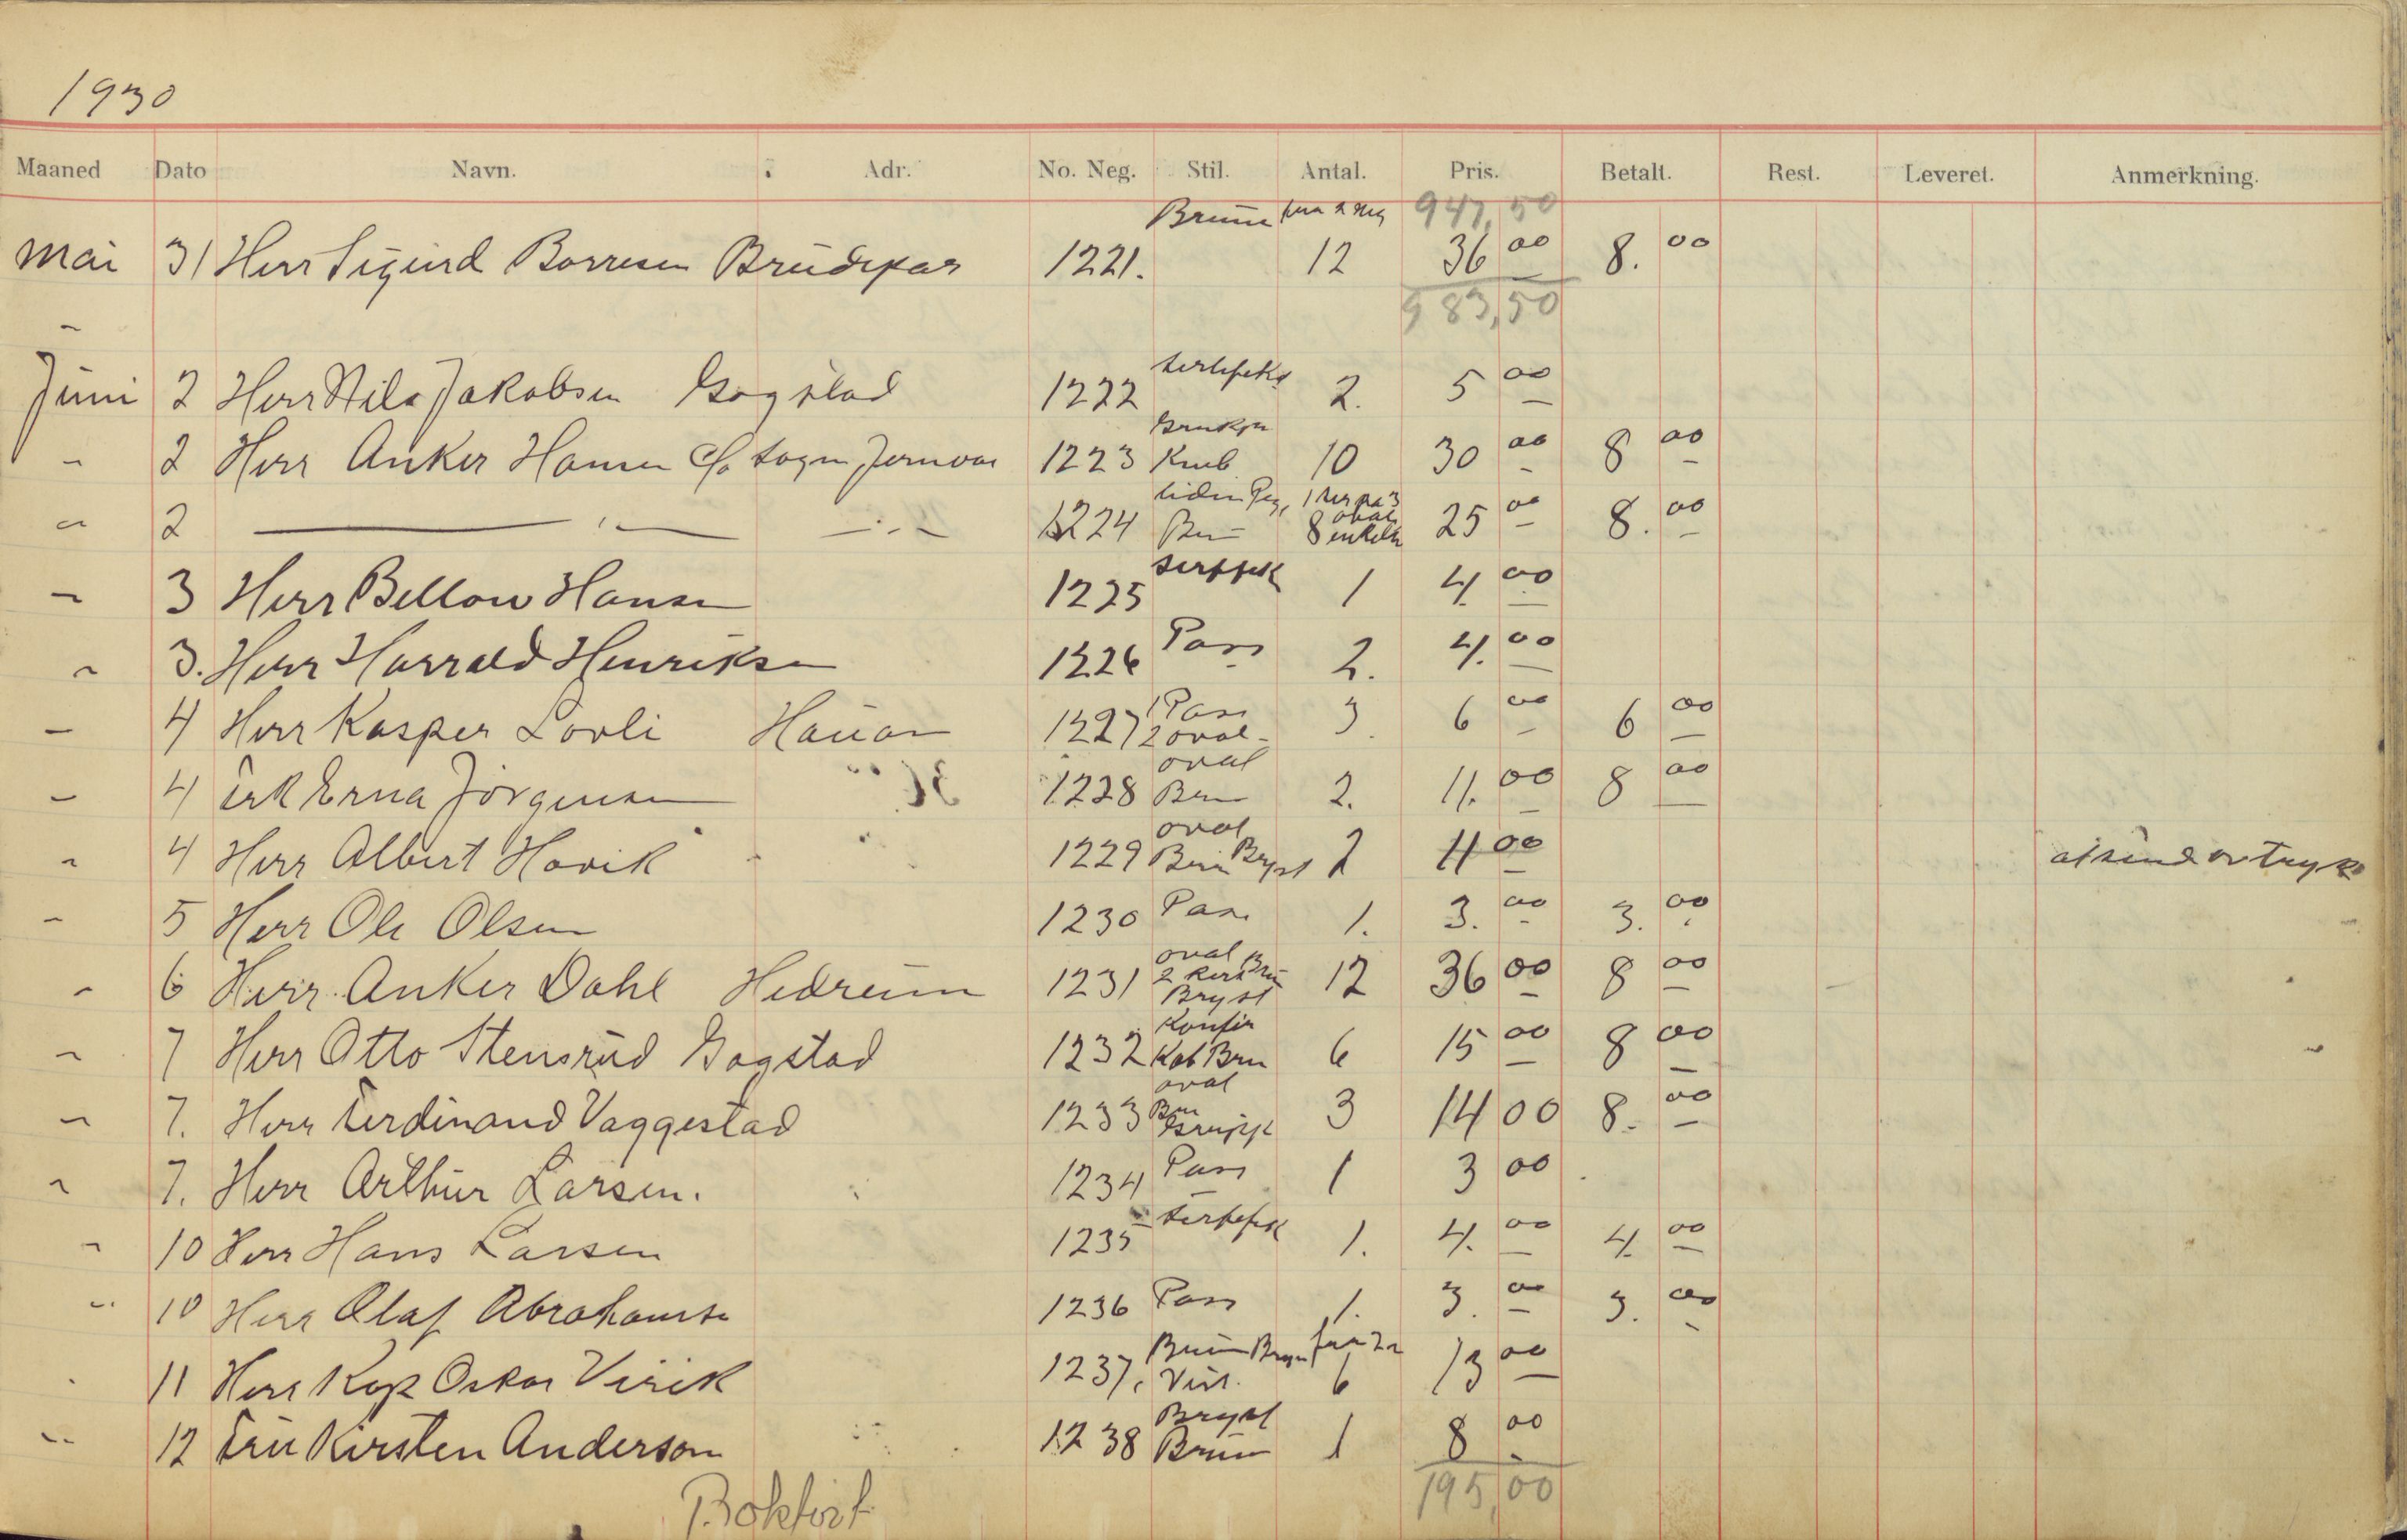 1930
Maaned Dato Navn. Adr. No. Neg. Stil. Antal. Pris. Betalt. Rest. Leveret. Anmerkning.
Brun 947,50
Mai 31 Herr Sigurd Borresen Brudepar 1221. 12 36 00 8. 00
983,50
Juni 2 Herr Nils Jakobsen Gogstad 1222 2. 5 00
2 Herr Anker Hansen c/o 1223 10 30 00 8 00
2 1224 8 enkelte 25 00 8. 00
3 Herr Bellow Hansen 1225 1 4. 00
3. Herr Harrald Henriksen 1226 Pass 2. 4. 00
4 Herr Kasper Lovli Hauan 1227 1 Pass 2 oval 3. 6 00 6 00
4 Frk Erna Jörgensen 1228 oval Brun 2. 11. 00 8 00
4 Herr Albert Hovik 1229 oval Brun Bryst 2 11 00
5 Herr Ole Olsen 1230 Pass 1. 3. 00 3. 00
6 Herr Anker Dahl Hedrum 1231 oval Brun Bryst 12 36 00 8 00
7 Herr Otto Stensrud Gogstad 1232 Konfir Kab Brun 6 15 00 8 00
7. Herr Ferdinand Vaggestad 1233 oval Brun 3 14 00 8. 00
7. Herr Arthur Larsen. 1234 Pass 1 3 00
10 Herr Hans Larsen 1235 1. 4. 00 4. 00
10 Herr Olaf Abrahamsen 1236 Pass 1. 3. 00 3. 00
11 Herr Kap Oskar Virik 1237. Brun Visit. 6 13 00
12 Fru Kirsten Anderson 1238 Bryst Brun 1 8 00
195,00
Bokført